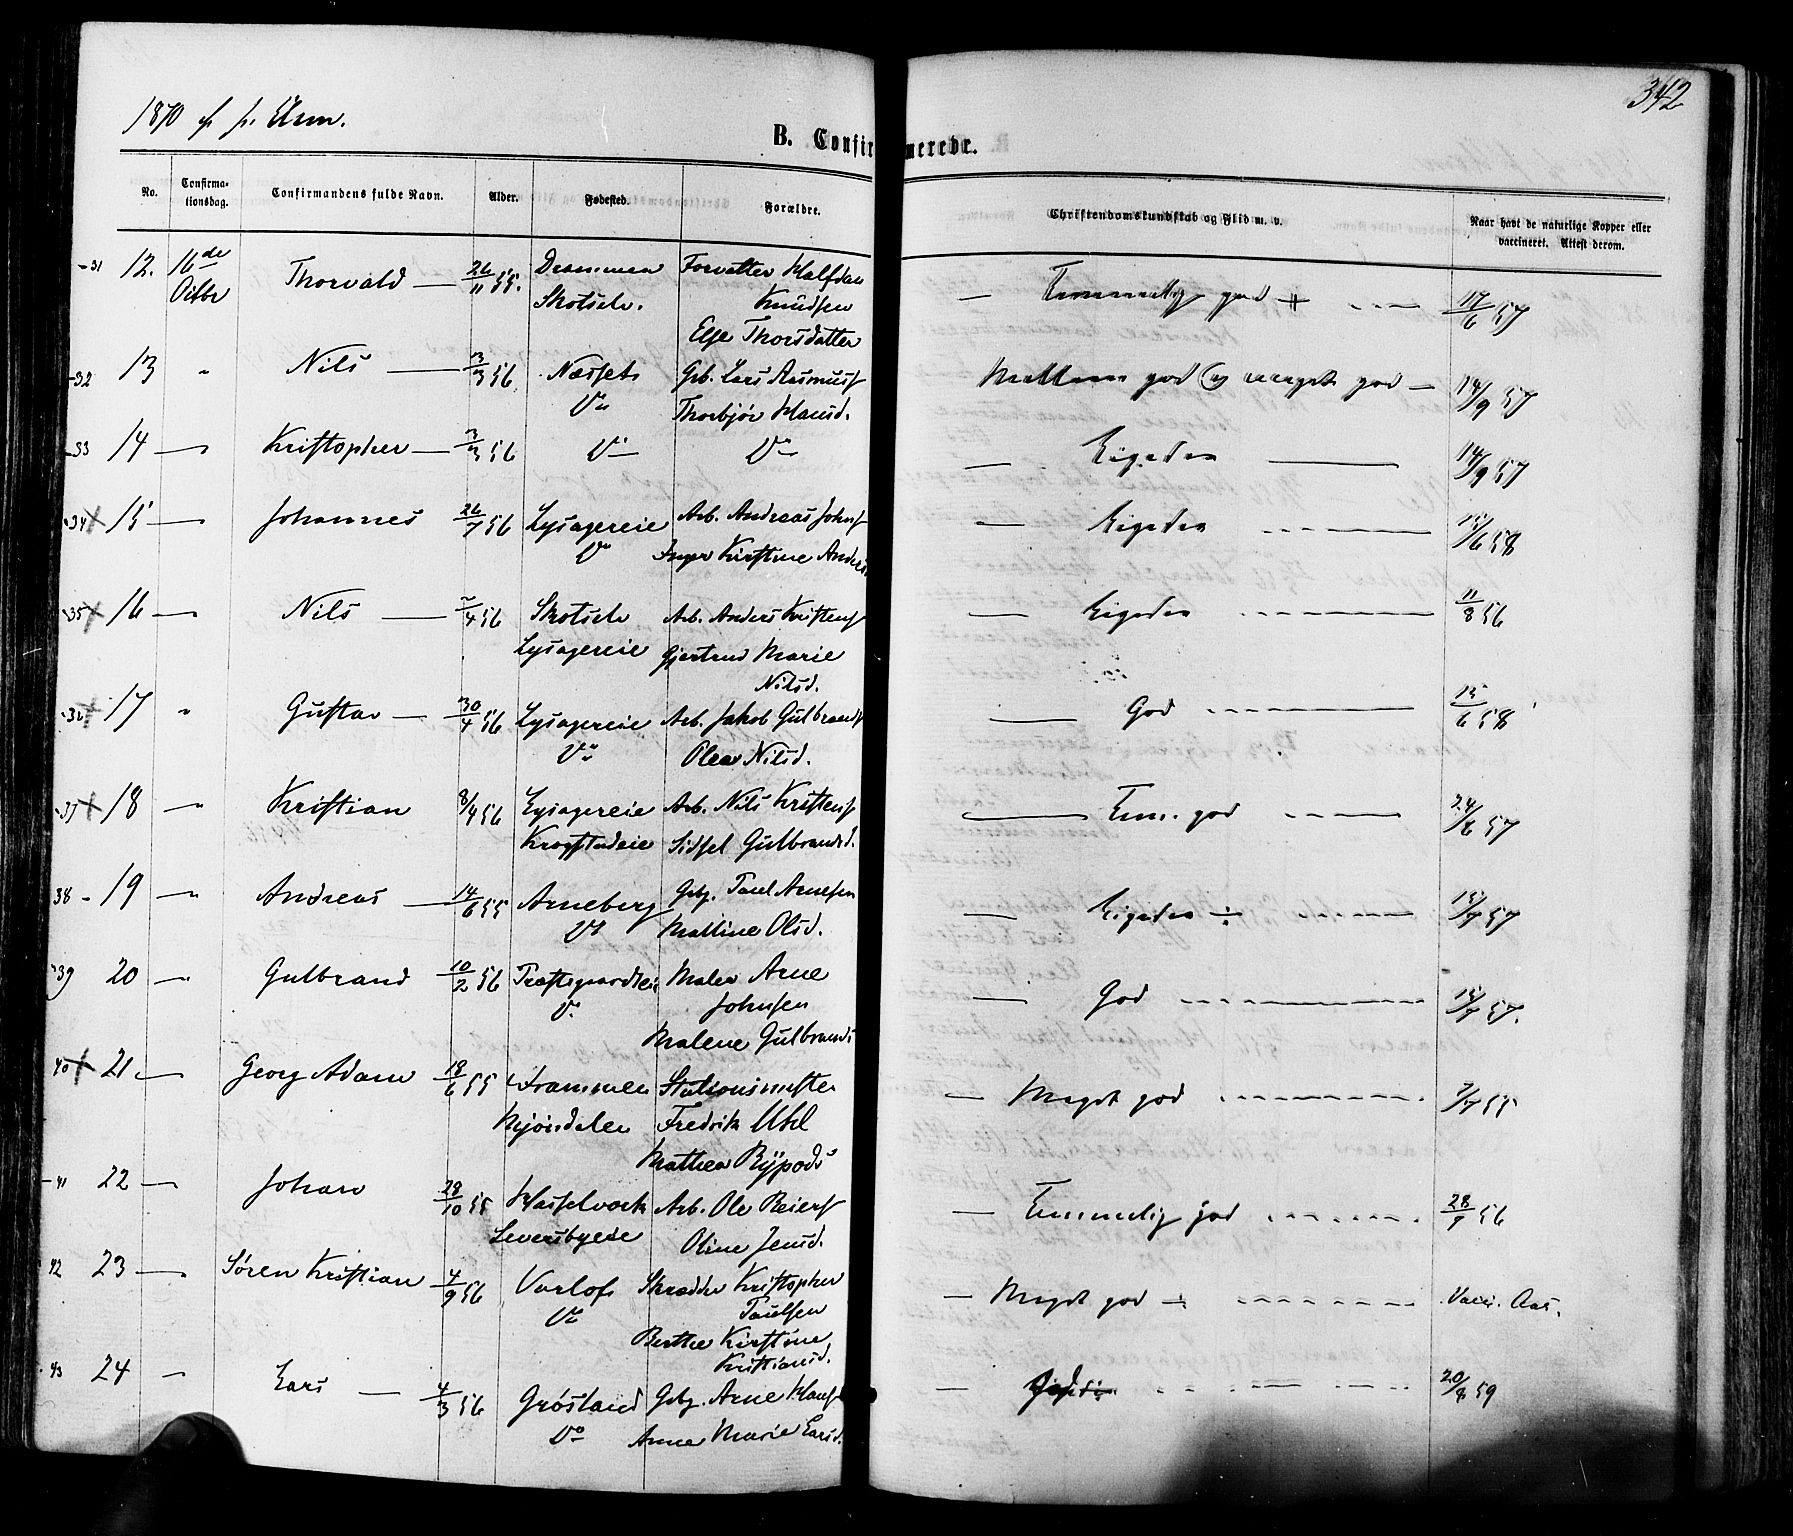 342
1870 f. Urm.
B. Confirmerede.
No. Confirma-tionsdag. Confirmandens fulde Navn. Alder. Fødested. Forældre. Christendomskundskab og Flid m. v. Naar havt de naturlige Kopper eller vaccineret. Attest derom.
31 12. 16de Thorvald — 26/11 55. Drammen Forvalter Halfdan — Temmelig god + 17/6 57
Octbr Skotselv. Knudsen
Else Thorsdatter
32 13 " Nils — 3/3 56 Næsset Grb. Lars Rasmuss Mellem god og meget god — 14/9 57
Do Thorbjør Hansd.
33 14 — Kristopher — 3/3 56 Do Do — Ligeden — 14/9 57
34 15 — Johannes 26/7 56 Lysagereie Arb. Andreas Johns — Ligeden 15/6 58
Do Inger Kirstine Anders
35 16 — Nils — 2/4 56 Skotselv Arb. Anders Kristens — Ligeden 11/8 56
Lysagereie Gjertrud Marie
Nilsd.
36 17 " Gustav — 30/4 56 Lysagereie Arb. Jakob Gulbrands — God 15/6 58
Do Olea Nilsd.
37 18 " Kristian 8/4 56 Lysagereie Arb. Nils Kristens — Tem. god 24/6 57
Krogstadeie Sidsel Gulbrandsd.
38 19 — Andreas — 14/6 55 Arneberg Gbr. Paul Arnesen — Ligeden ÷ 15/7 57
Do Malline Olsd.
39 20 — Gulbrand 10/2 56 Præstegaardsei Maler Arne — God 15/7 57.
Do Johnsen
Malene Gulbrands
40 21 — Georg Adam 18/6 55 Drammen Stationsmester — Meget god 7/7 55
Mjøndalen Fredrik Uhl
Mathea
41 22 — Johan 28/10 55 Hasselvock Arb. Ole Reiers — Temmelig god 28/9 56
Oline Jensd.
42 23 — Søren Kristian 4/9 56 Varlo Skrædder Kristopher — Meget god ÷ Vacci. Aas.
Do Paulsen
Berthe Kirstine
Kristiansd.
43 24 " Lars — 4/3 56 Grøsland Gbr. Arne Hans — 20/8 59
Do Anne Marie Larsd.